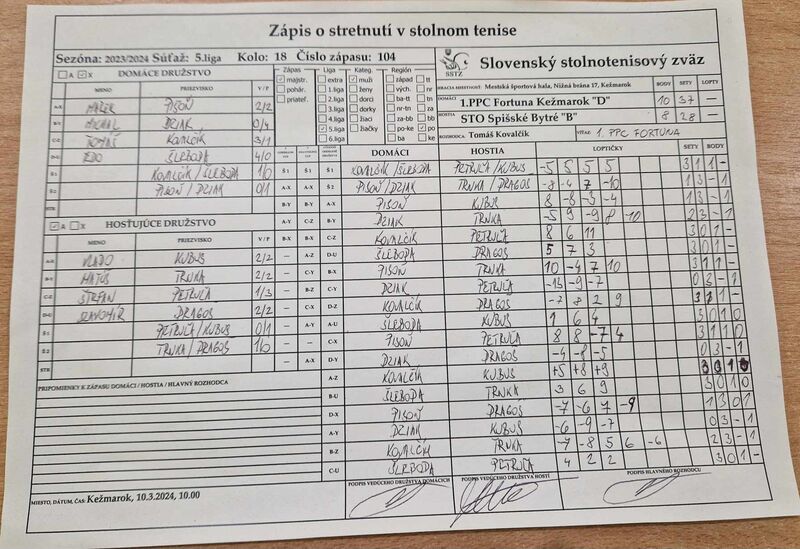 Zápis o stretnutí v stolnom tenise
Sezóna: 2023/2024 Súťaž: 5.liga Kolo: 18 Číslo zápasu: 104
Slovenský stolnotenisový zväz
SSTZ
HRACIA MIESTNOSŤ: Mestská športová hala, Nižná brána 17, Kežmarok
BODY SETY LOPTY
DOMÁCI 1.PPC Fortuna Kežmarok "D" 10 37 —
HOSTIA STO Spišské Bytré "B" 8 28 —
ROZHODCA: Tomáš Kovalčík VÍŤAZ: 1. PPC FORTUNA
Zápas Liga Kateg. Región
majstr. extra muži západ tt
pohár. 1.liga ženy východ tn
priateľ. 2.liga dorci ba-tt tn
3.liga dorky nr-tn za
4.liga žiaci za-bb bb
5.liga žiačky po-ke po
6.liga ba ke
A X DOMÁCE DRUŽSTVO
MENO PRIEZVISKO V / P
A-X PISOŇ 2/2
B-Y MICHAL DZIAK 0/4
C-Z TOMÁŠ KOVALČÍK 3/1
D-U EDO ŠLEBODA 4/0
Š 1 KOVALČÍK/ŠLEBODA 1/0
Š 2 PISOŇ/DZIAK 0/1
STR
A X HOSŤUJÚCE DRUŽSTVO
MENO PRIEZVISKO V / P
A-X VLADO KUBUS 2/2
B-Y MATÚŠ TRNKA 2/2
C-Z ŠTEFAN PETRUĽA 1/3
D-U SLAVOMÍR DRAGOŠ 2/2
Š 1 PETRUĽA/KUBUS 0/1
Š 2 TRNKA/DRAGOŠ 1/0
STR
PRIPOMIENKY K ZÁPASU DOMÁCI / HOSTIA / HLAVNÝ ROZHODCA
DOMÁCI HOSTIA LOPTIČKY SETY BODY
Š 1 Š 1 Š 1 KOVALČÍK/ŠLEBODA PETRUĽA/KUBUS -5 5 5 5 3 1 1 -
Š 2 Š 2 Š 2 PISOŇ/DZIAK TRNKA/DRAGOŠ -8 -4 7 -10 1 3 - 1
B-Y B-Y A-X PISOŇ KUBUS 8 -8 -3 -4 1 3 - 1
A-Y C-Z B-Y DZIAK TRNKA -5 9 -9 8 -10 2 3 - 1
B-X B-X C-Z KOVALČÍK PETRUĽA 8 6 11 3 0 1 -
— A-Z D-U ŠLEBODA DRAGOŠ 5 7 3 3 0 1 -
— C-Y B-X PISOŇ TRNKA 10 -4 7 10 3 1 1 -
— B-Z C-Y DZIAK PETRUĽA -13 -9 -7 0 3 - 1
— C-X D-Z KOVALČÍK DRAGOŠ -7 8 2 9 3 1 1 -
— A-Y A-U ŠLEBODA KUBUS 1 6 4 3 0 1 -
— — C-X PISOŇ PETRUĽA 8 8 -7 4 3 1 1 0
— A-X D-Y DZIAK DRAGOŠ -4 -8 -5 0 3 - 1
A-Z KOVALČÍK KUBUS +5 +8 +9 3 0 1 0
B-U ŠLEBODA TRNKA 3 6 9 3 0 1 0
D-X PISOŇ DRAGOŠ -7 -6 7 -9 1 3 0 1
A-Y DZIAK KUBUS -6 -9 -7 0 3 - 1
B-Z KOVALČÍK TRNKA -7 -8 5 6 -6 2 3 - 1
C-U ŠLEBODA PETRUĽA 4 2 2 3 0 1 -
MIESTO, DÁTUM, ČAS Kežmarok, 10.3.2024, 10.00
PODPIS VEDÚCEHO DRUŽSTVA DOMÁCICH
PODPIS VEDÚCEHO DRUŽSTVA HOSTÍ
PODPIS HLAVNÉHO ROZHODCU